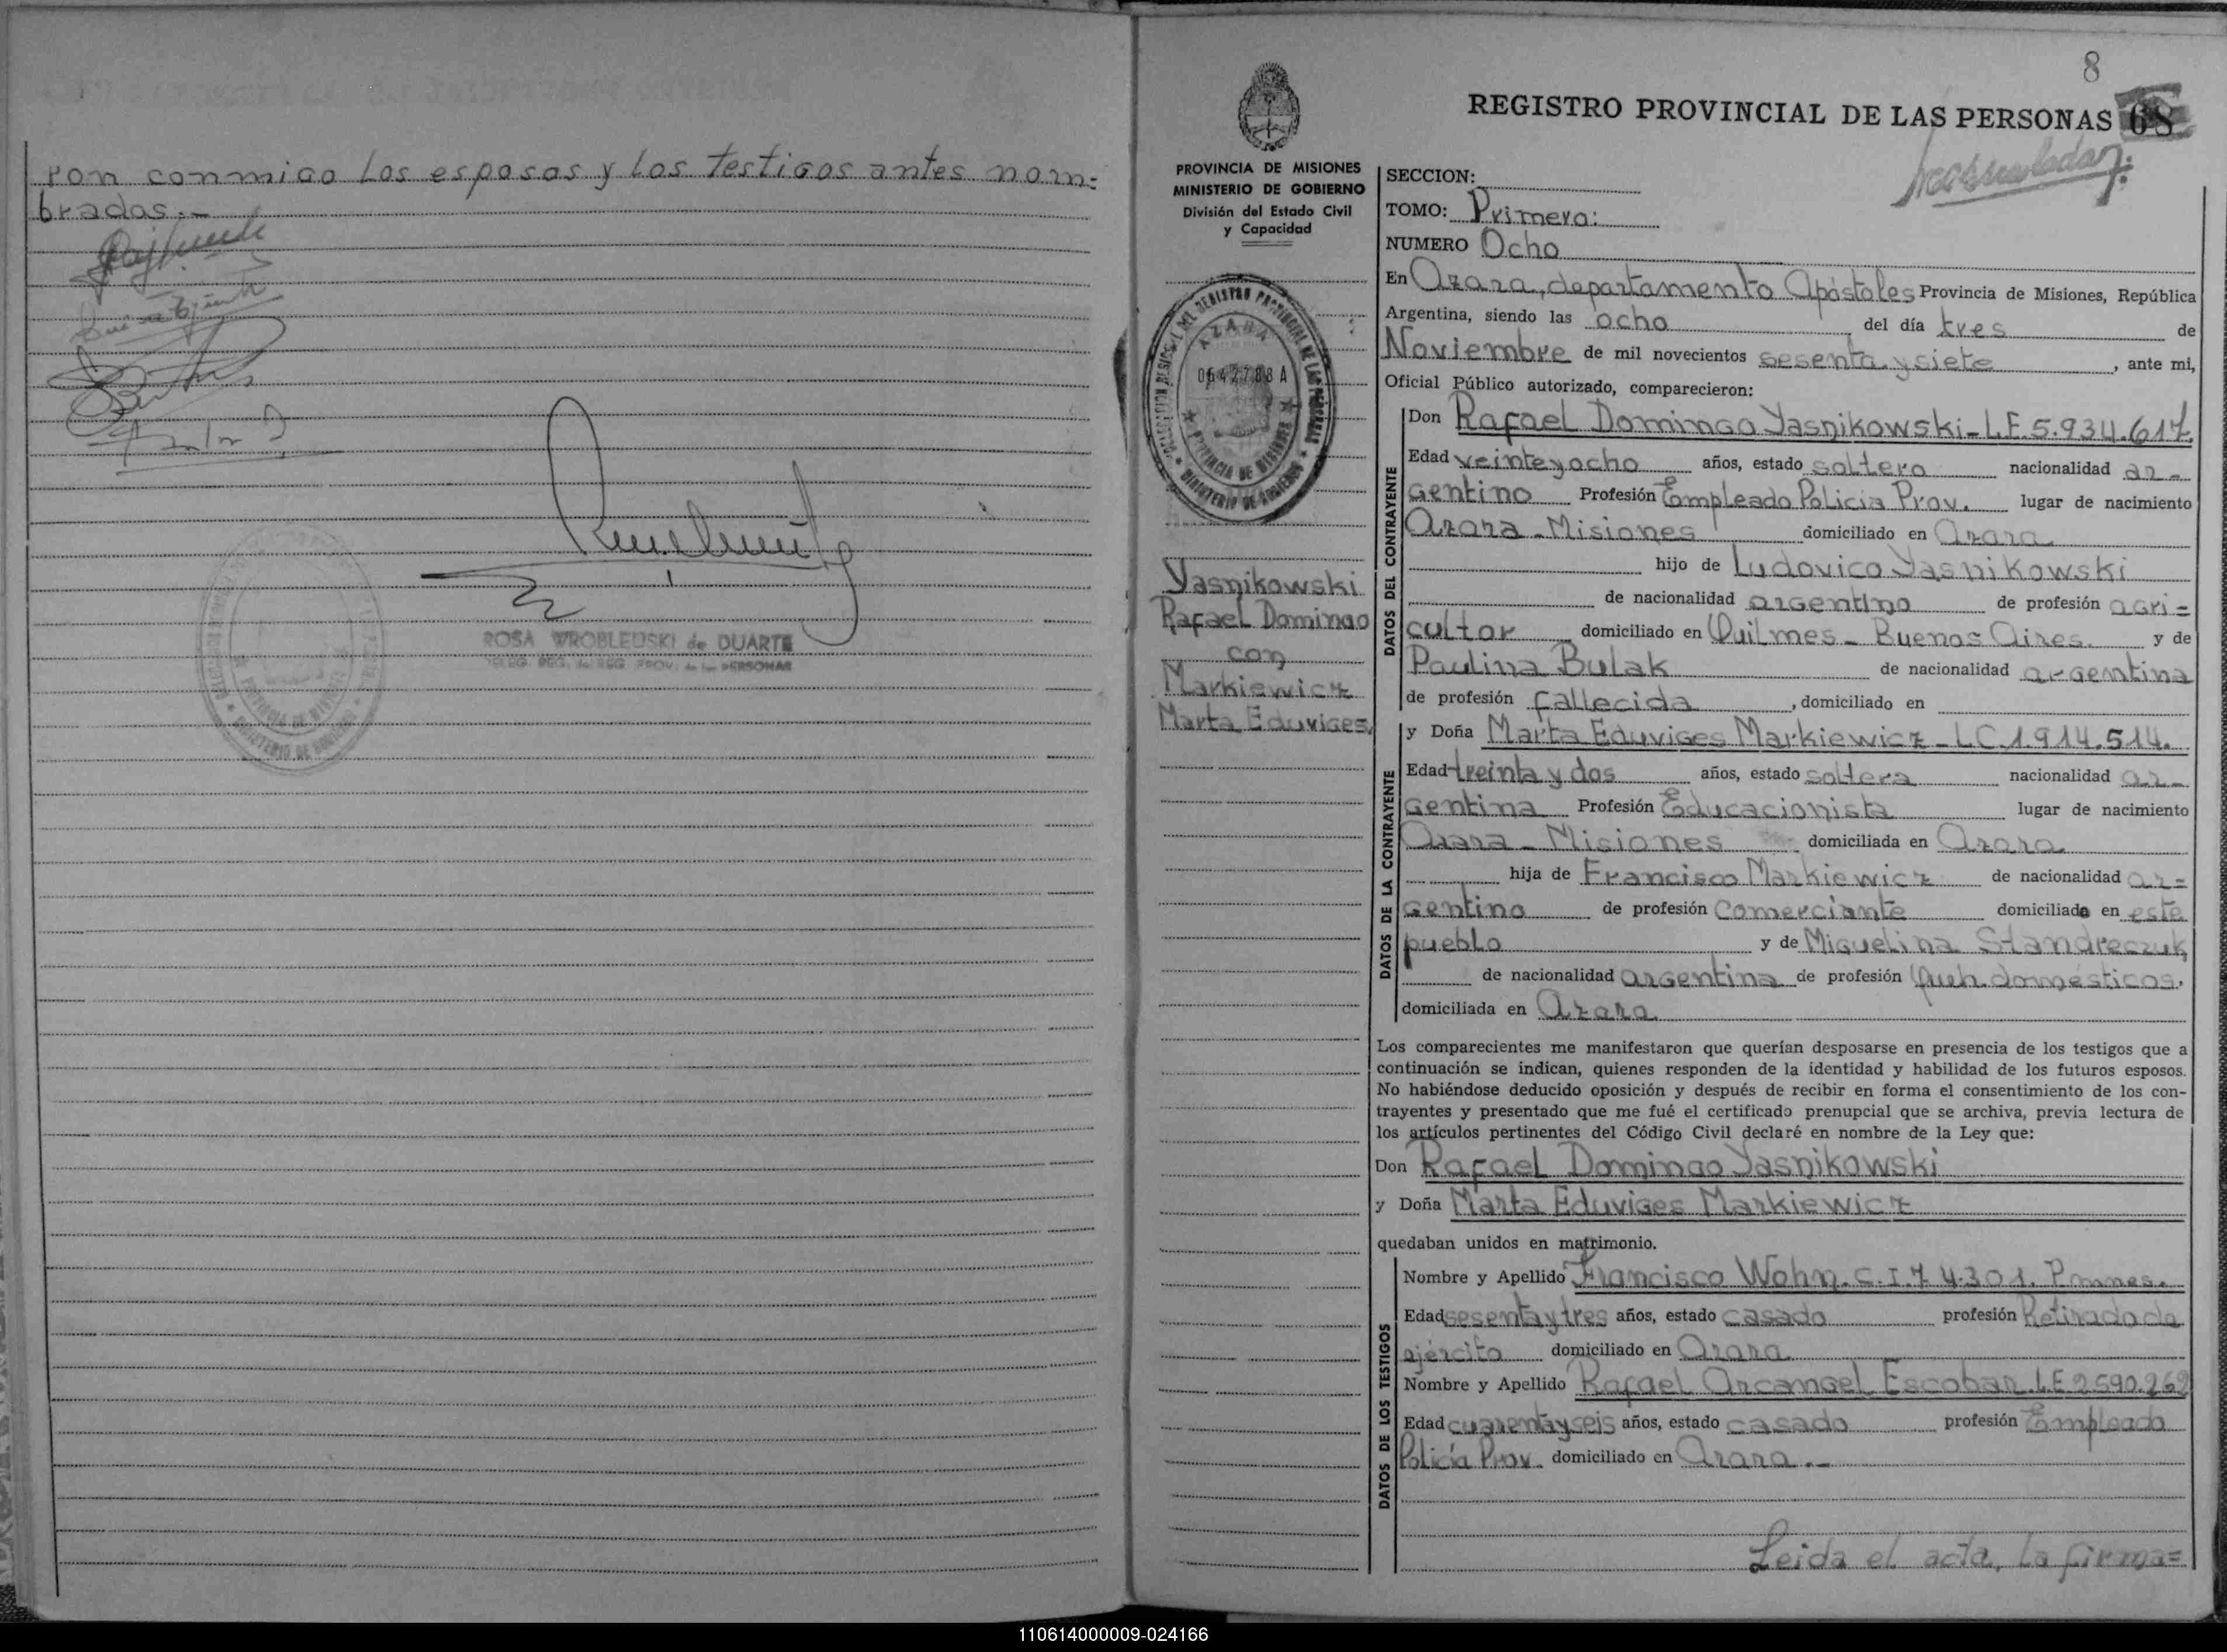 ron conmigo los esposos y los testigos antes nom=
brados.-
ROSA WROBLEUSKI de DUARTE
8
REGISTRO PROVINCIAL DE LAS PERSONAS 68
PROVINCIA DE MISIONES
MINISTERIO DE GOBIERNO
División del Estado Civil
y Capacidad
AZARA
0642788 A
PROVINCIA DE MISIONES
MINISTERIO DE GOBIERNO
Yasnikowski
Rafael Domingo
con
Markiewicz
Marta Eduviges
SECCION:
TOMO: Primero:
NUMERO Ocho
En Azara, departamento Apóstoles Provincia de Misiones, República
Argentina, siendo las ocho del día tres de
Noviembre de mil novecientos sesenta y siete, ante mi,
Oficial Público autorizado, comparecieron:
DATOS DEL CONTRAYENTE
Don Rafael Domingo Yasnikowski - L.E. 5.934.617.
Edad veinteyocho años, estado soltero nacionalidad ar-
gentino Profesión Empleado Policia Prov. lugar de nacimiento
Azara - Misiones domiciliado en Azara
hijo de Ludovico Yasnikowski
de nacionalidad argentino de profesión agri=
cultor domiciliado en Quilmes - Buenos Aires. y de
Paulina Bulak de nacionalidad argentina
de profesión fallecida, domiciliado en
DATOS DE LA CONTRAYENTE
y Doña Marta Eduviges Markiewicz - L.C. 1.914.514.
Edad treinta y dos años, estado soltera nacionalidad ar-
gentina Profesión Educacionista lugar de nacimiento
Azara - Misiones domiciliada en Azara
hija de Francisco Markiewicz de nacionalidad ar=
gentino de profesión Comerciante domiciliado en este
pueblo y de Miguelina Standreczuk
de nacionalidad argentina de profesión Queh. domésticos.
domiciliada en Azara
Los comparecientes me manifestaron que querían desposarse en presencia de los testigos que a
continuación se indican, quienes responden de la identidad y habilidad de los futuros esposos.
No habiéndose deducido oposición y después de recibir en forma el consentimiento de los con-
trayentes y presentado que me fué el certificado prenupcial que se archiva, previa lectura de
los artículos pertinentes del Código Civil declaré en nombre de la Ley que:
Don Rafael Domingo Yasnikowski
y Doña Marta Eduviges Markiewicz
quedaban unidos en matrimonio.
DATOS DE LOS TESTIGOS
Nombre y Apellido Francisco Wohn. C.I. 74.301. Pmnes.
Edad sesenta y tres años, estado casado profesión Retirado de
ejército domiciliado en Azara
Nombre y Apellido Rafael Arcangel Escobar. L.E 2.590.262
Edad cuarenta y seis años, estado casado profesión Empleado
Policía Prov. domiciliado en Azara.-
Leida el acta, la firma=
110614000009-024166